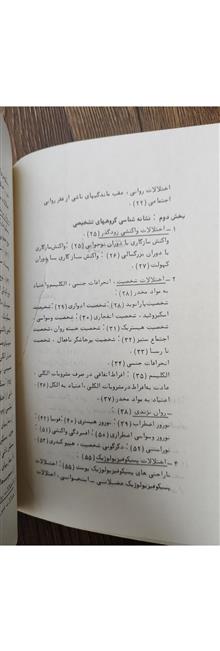 اختلالات روانی، عقب ماندگیهای ناشی از فقر روانی
اجتماعی (۲۲).
بخش دوم: نشانه شناسی گروههای تشخیصی
۱ـ اختلالات واکنشی زودگذر (۲۵)
واکنش سازگاری با دوران نوجوانی (۲۵) ؛ واکنش سازگاری
با دوران بزرگسالی (۲۶) ؛ واکنش سازگاری با دوران
کهولت (۲۷).
۲ـ اختلالات شخصیت، انحرافات جنسی، الکلیسم و اعتیاد
به مواد مخدر (۲۸) :
شخصیت پارانوئید (۲۸) ؛ شخصیت ادواری (۲۹) ؛ شخصیت
اسکیزوئید، شخصیت انفجاری (۳۰) ؛ شخصیت وسواسی،
شخصیت هیستریک (۳۱) ؛ شخصیت خسته روان، شخصیت
اجتماع ستیز (۳۲) ؛ شخصیت پرخاشگر نافعال، شخصیت
نا رسا (۳۳).
انحرافات جنسی (۳۴).
الکلیسم (۳۵) : افراط اتفاقی در صرف مشروبات الکلی،
عادت به افراط در مشروبات الکلی، اعتیاد به الکل (۳۶)
اعتیاد به مواد مخدر (۳۷).
۳ـ روان نژندی (۳۸) :
نوروز اضطراب (۳۹) ؛ نوروز هیستری (۴۰) ؛ فوبیا (۴۱)
نوروز وسواسی اضطراری (۵۰) ؛ افسردگی واکنشی (۵۱) ؛
نوراستنی (۵۲) ؛ دگرگونی شخصیت، هیپوکندری (۵۳)
۴ـ اختلالات پسیکوفیزیولوژیک (۵۵) :
ناراحتی های پسیکوفیزیولوژیک پوست (۵۵) ؛ اختلالات
پسیکوفیزیولوژیک عضلانی ـ استخوانی، اختلالات